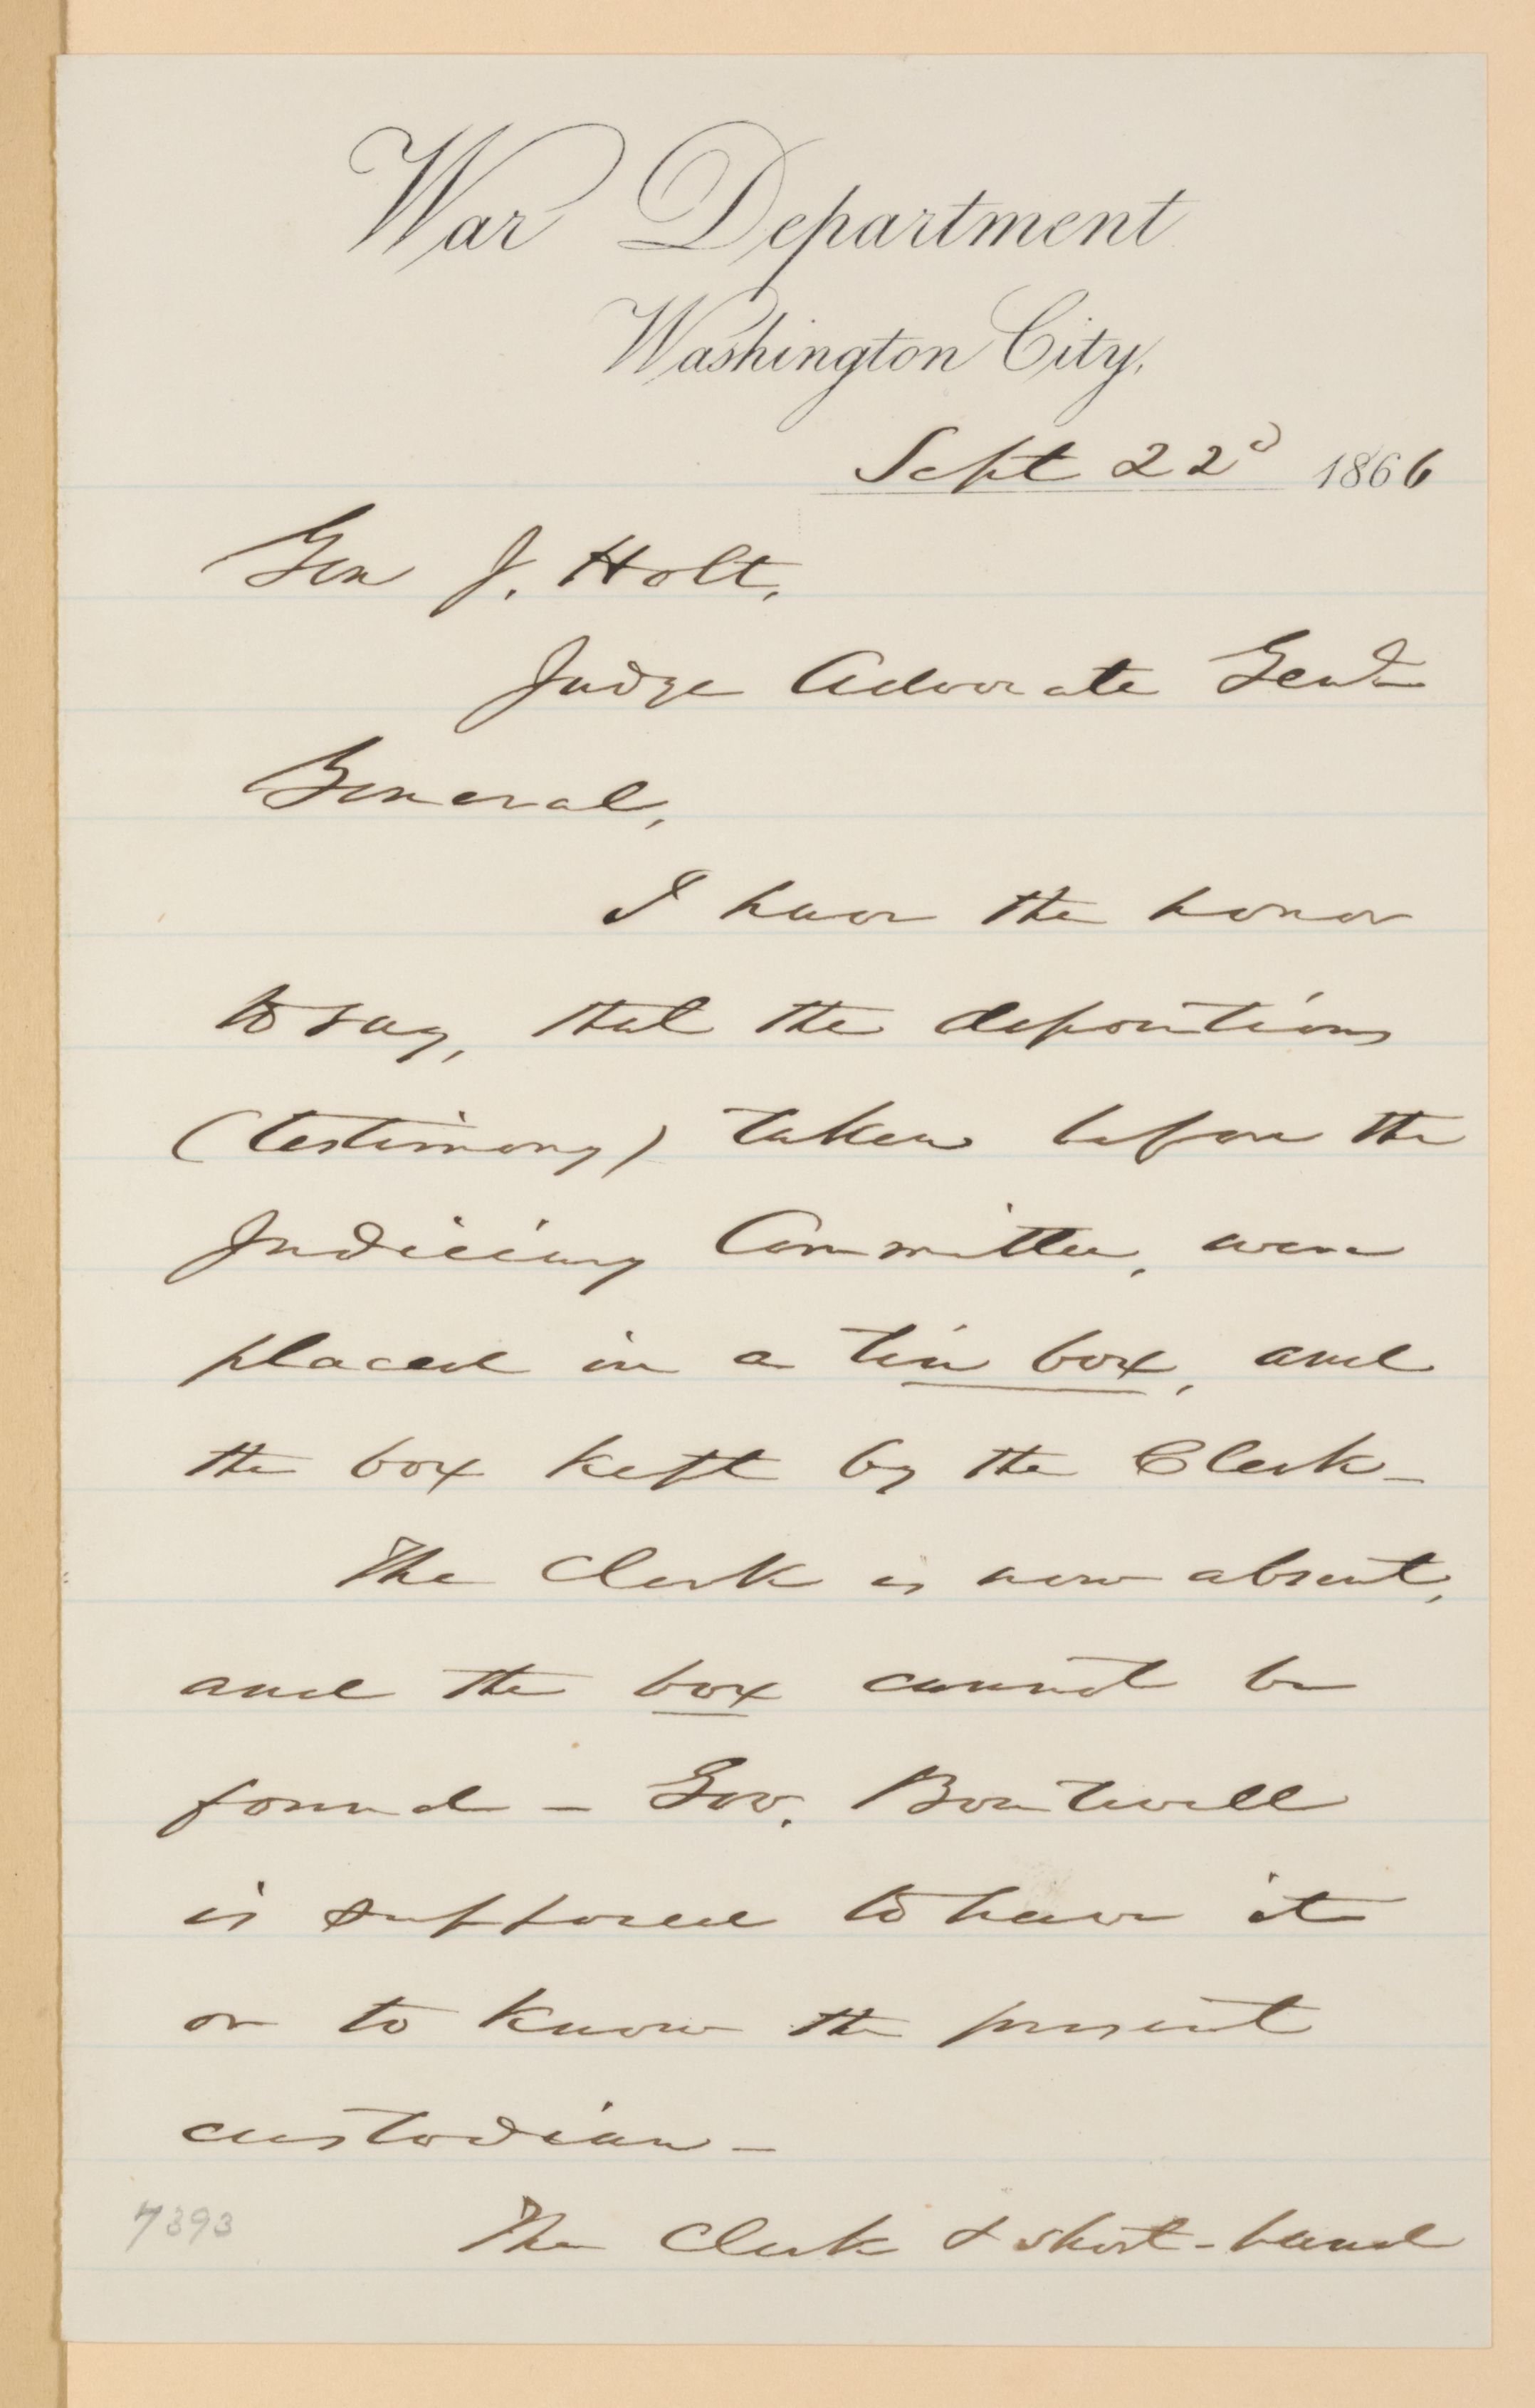 War Department
Washington City,
Sept 22d 1866
Gen J. Holt,
Judge Advocate Genl
General,
I have the honor
to say, that the depositions
(testimony) taken before the
Judiciary Committee, were
placed in a tin box, and
the box kept by the Clerk -
The Clerk is now absent,
and the box cannot be
found - Gov. Boutwell
is supposed to have it
or to know the present
custodian -
The Clerk & short-hand
7393